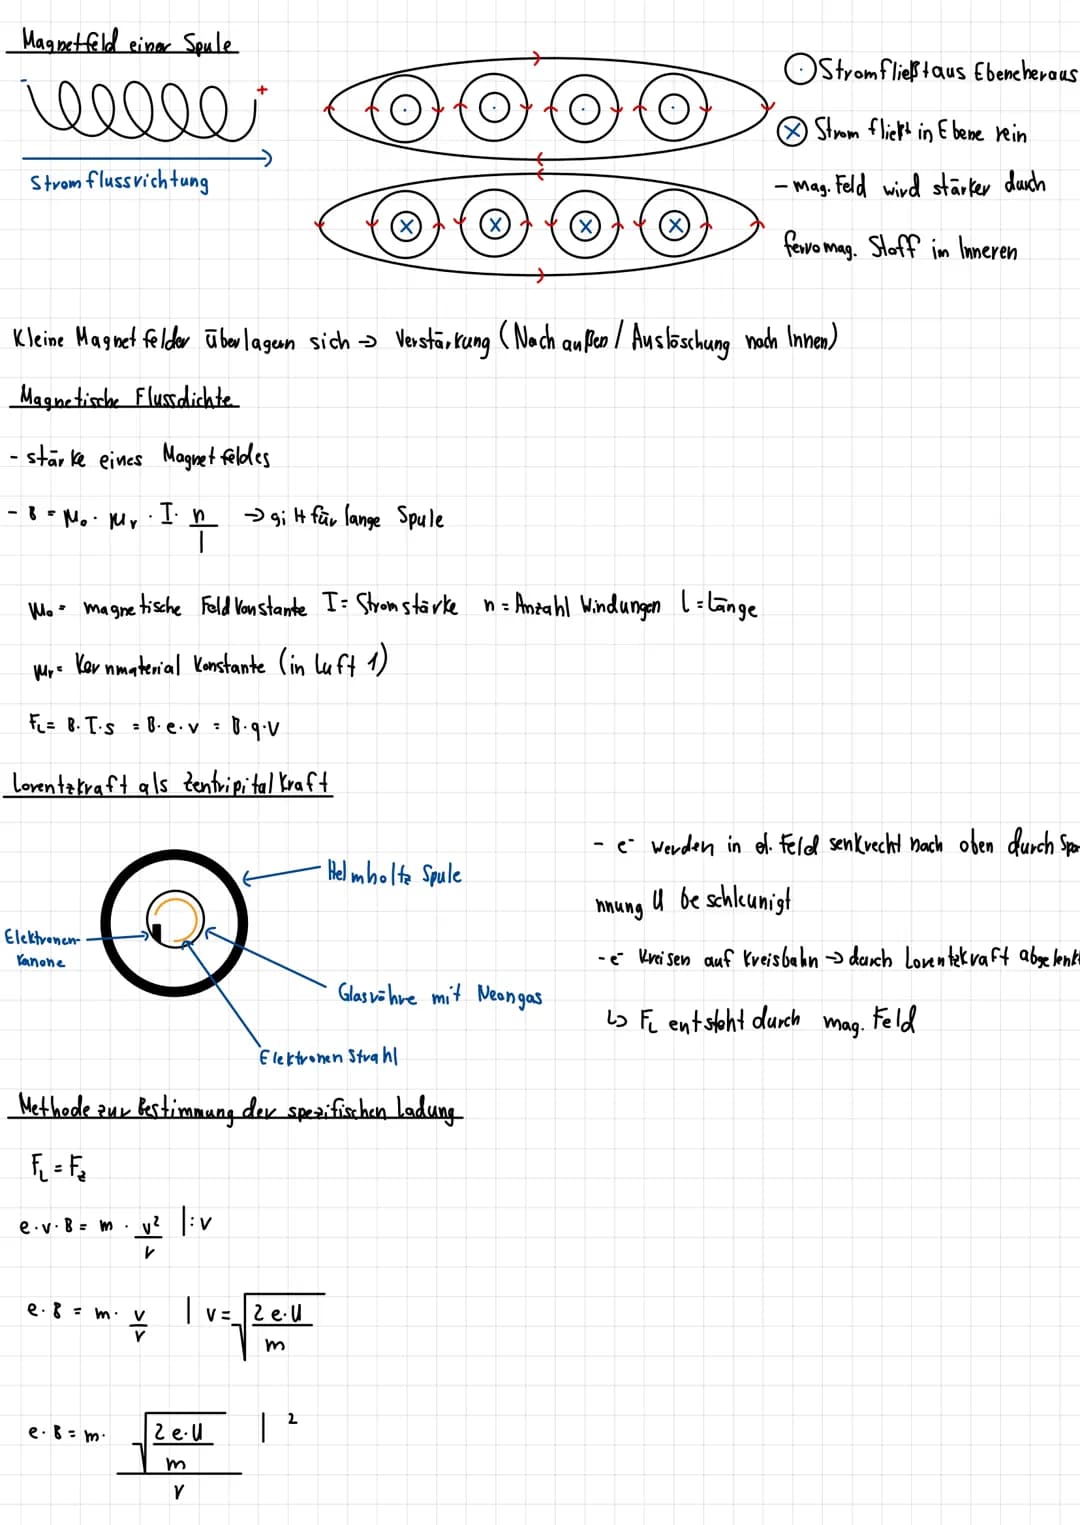 Magnetfeld einer Spule
- +
Stromflussrichtung
⊙ Strom fließt aus Ebene heraus
⊗ Strom fließt in Ebene rein
- mag. Feld wird stärker durch
ferromag. Stoff im Inneren
Kleine Magnetfelder überlagern sich → Verstärkung (Nach außen / Auslöschung nach Innen)
Magnetische Flussdichte
- stärke eines Magnetfeldes
- B = μ₀ · μᵣ · I · n/l → gilt für lange Spule
μ₀ = magnetische Feldkonstante I = Stromstärke n = Anzahl Windungen l = Länge
μᵣ = Kernmaterial Konstante (in Luft 1)
F_L = B · I · s = B · e · v = B · q · v
Lorentzkraft als Zentripitalkraft
Helmholtz Spule
Elektronen-
Kanone
Glasröhre mit Neongas
Elektronen Strahl
- e⁻ werden in el. Feld senkrecht nach oben durch Spa
nnung U beschleunigt
- e⁻ Kreisen auf Kreisbahn → durch Lorentzkraft abgelenkt
↳ F_L entsteht durch mag. Feld
Methode zur Bestimmung der spezifischen Ladung
F_L = F_z
e · v · B = m · v²/r |: v
e · B = m · v/r | v = √(2e·U/m)
e · B = m · √(2e·U/m)/r | ²